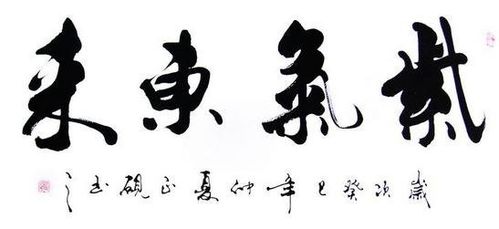 紫氣東来
歲次癸巳年仲夏正硯书之